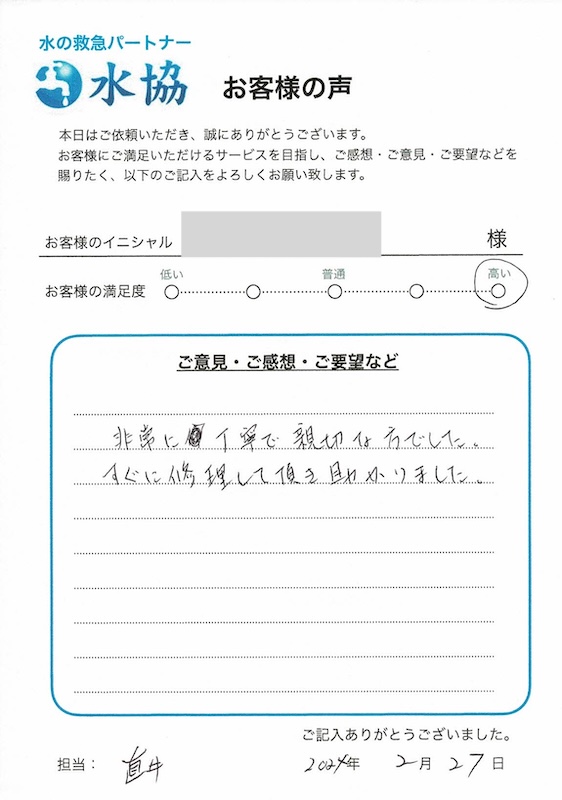 水の救急パートナー
水協
お客様の声
本日はご依頼いただき、誠にありがとうございます。
お客様にご満足いただけるサービスを目指し、ご感想・ご意見・ご要望などを
賜りたく、以下のご記入をよろしくお願い致します。
お客様のイニシャル 様
低い 普通 高い
お客様の満足度
ご意見・ご感想・ご要望など
非常に丁寧で親切な方でした。
すぐに修理して頂き助かりました。
ご記入ありがとうございました。
担当： 直井 2024年 2月 27日